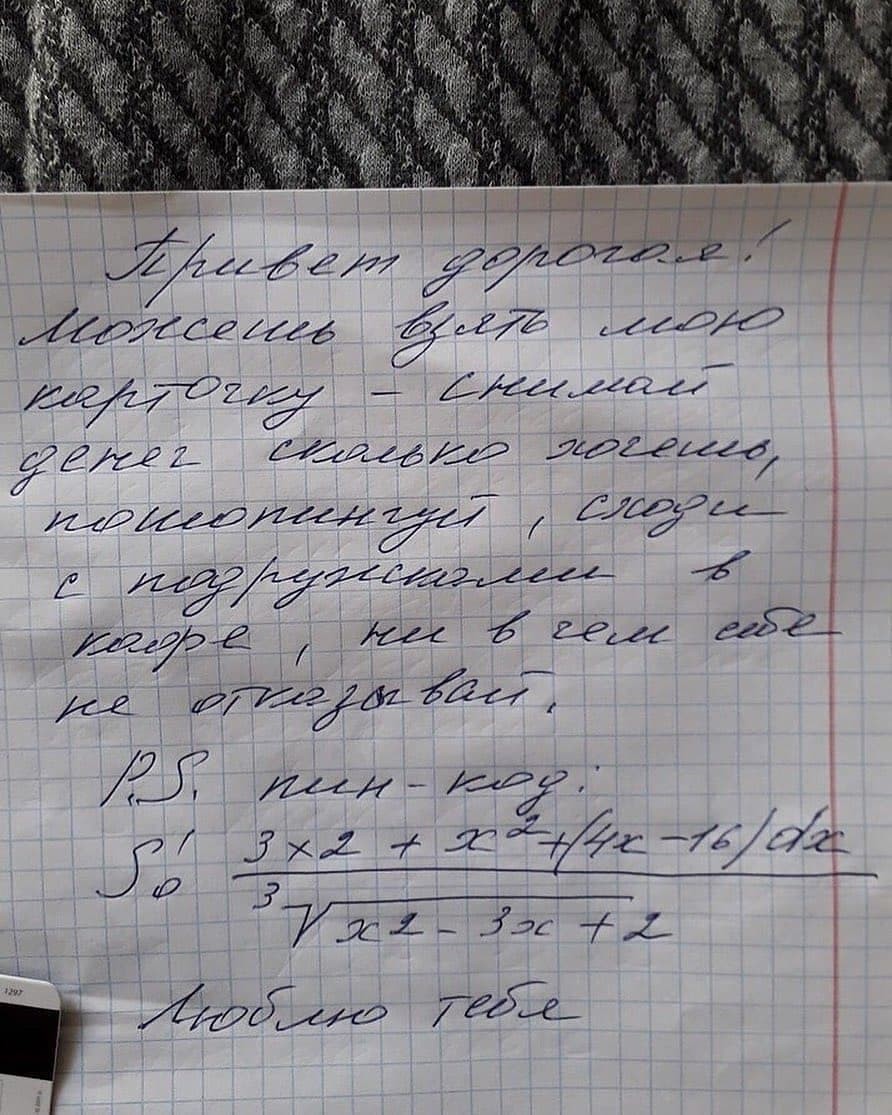 Привет дорогая!
Можешь взять мою
карточку - снимай
денег сколько хочешь,
пошопингуй, сходи
с подружками в
кафе, ни в чем себе
не отказывай.
P.S. пин-код:
∫₀¹ 3×2 + x² + (4x - 16) dx
³√x2 - 3x + 2
Люблю тебя
1297